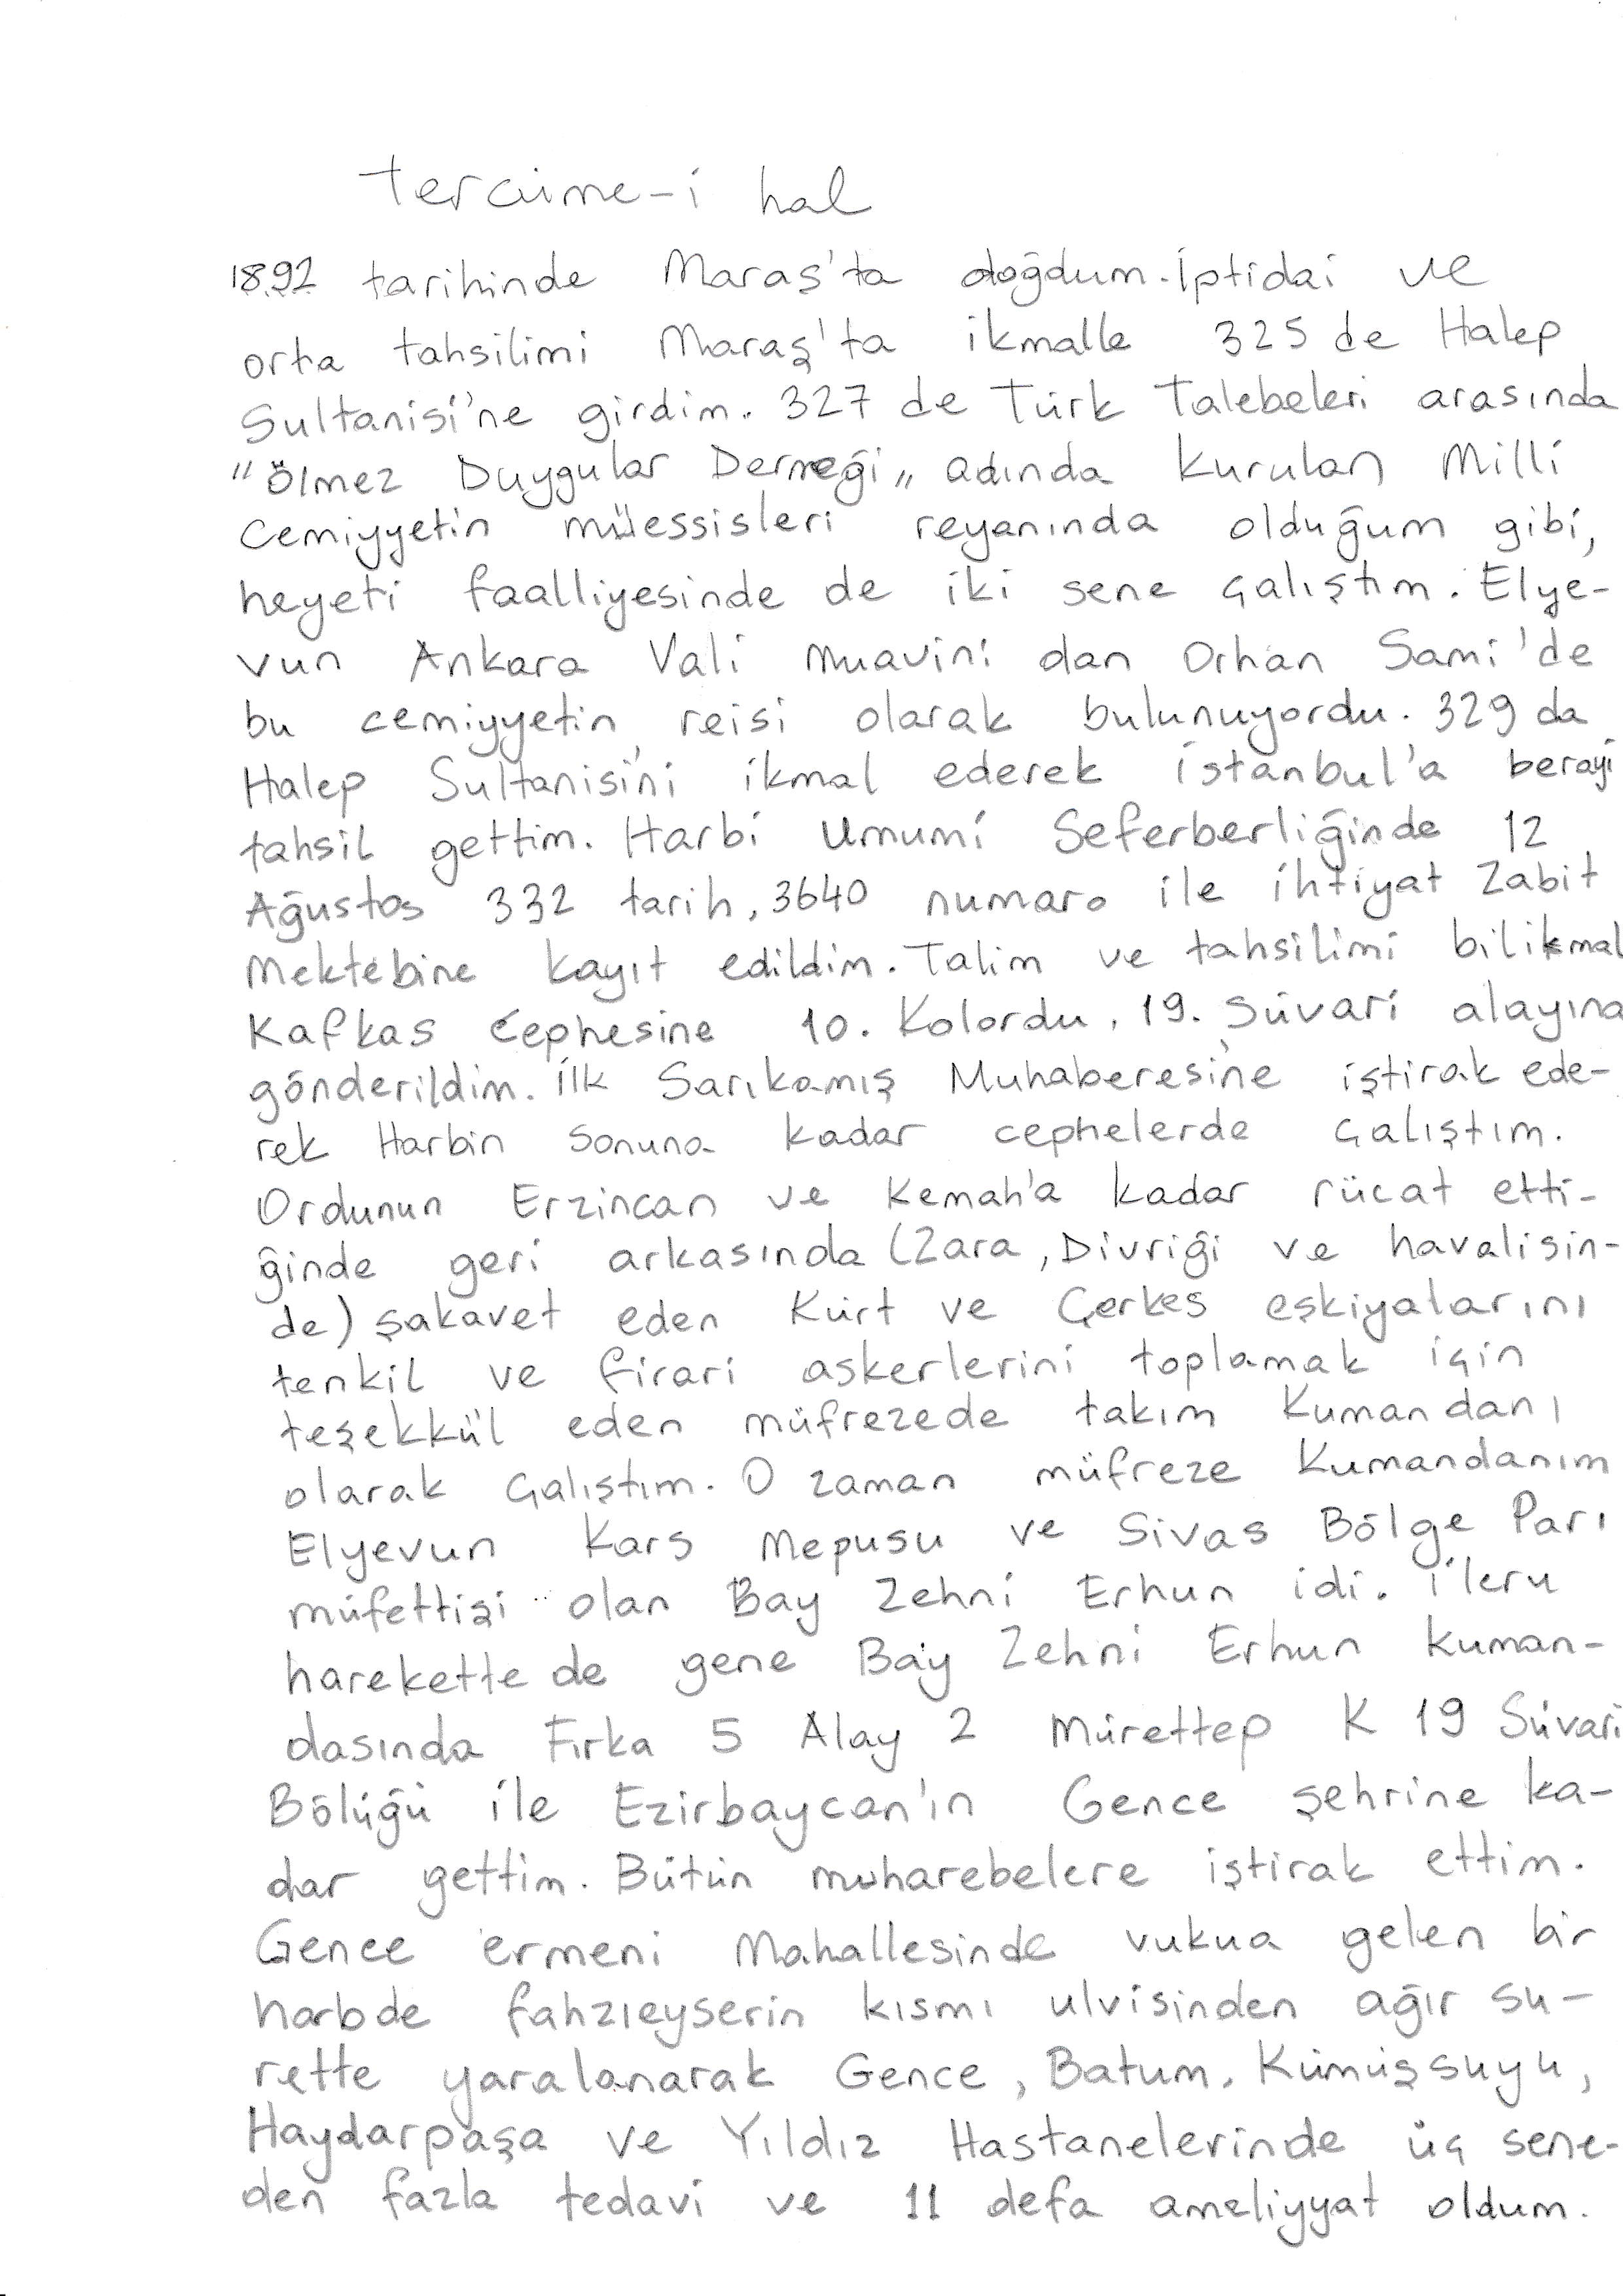 Tercüme-i hal
1892 tarihinde Maraş'ta doğdum. İptidai ve
orta tahsilimi Maraş'ta ikmalle 325 de Halep
Sultanisi'ne girdim. 327 de Türk Talebeleri arasında
"Ölmez Duygular Derneği„ adında kurulan Milli
Cemiyyetin müessisleri reyanında olduğum gibi,
heyeti faalliyesinde de iki sene çalıştım. Elye-
vun Ankara Vali muavini dan Orhan Sami'de
bu cemiyyetin reisi olarak bulunuyordu. 329 da
Halep Sultanisi'ni ikmal ederek İstanbul'a berayi
tahsil gettim. Harbi Umumi Seferberliğinde 12
Ağustos 332 tarih, 3640 numara ile ihtiyat Zabit
Mektebine kayıt edildim. Talim ve tahsilimi bilikmal
Kafkas Cephesine 10. Kolordu, 19. Süvari alayına
gönderildim. İlk Sarıkamış Muhaberesi'ne iştirak ede-
rek Harbin Sonuna kadar cephelerde çalıştım.
Ordunun Erzincan ve Kemah'a kadar rücat etti-
ğinde geri arkasında (Zara, Divriği ve havalisin-
de) şakavet eden Kürt ve Çerkes eşkiyalarını
tenkil ve firari askerlerini toplamak için
teşekkül eden müfrezede takım Kumandanı
olarak Çalıştım. O zaman müfreze Kumandanım
Elyevun Kars Mepusu ve Sivas Bölge Parı
müfettişi olan Bay Zehni Erhun idi. İleru
harekette de gene Bay Zehni Erhun kuman-
dasında Fırka 5 Alay 2 Mürettep K 19 Süvari
Bölüğü ile Ezirbaycan'ın Gence şehrine ka-
dar gettim. Bütün muharebelere iştirak ettim.
Gence ermeni Mahallesinde vukua gelen bir
harbde fahzıeyserin kısmı ulvisinden ağır su-
rette yaralanarak Gence, Batum, Kümüşsuyu,
Haydarpaşa ve Yıldız Hastanelerinde üç sene-
den fazla tedavi ve 11 defa ameliyyat oldum.